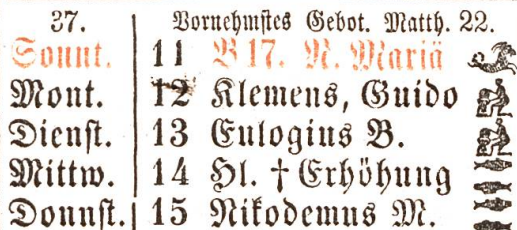 37. Vornehmstes Gebot. Matth. 22.
Sonnt. 11 B 17. N. Mariä
Mont. 12 Klemens, Guido
Dienst. 13 Eulogius B.
Mittw. 14 Hl. † Erhöhung
Donnst. 15 Nikodemus M.